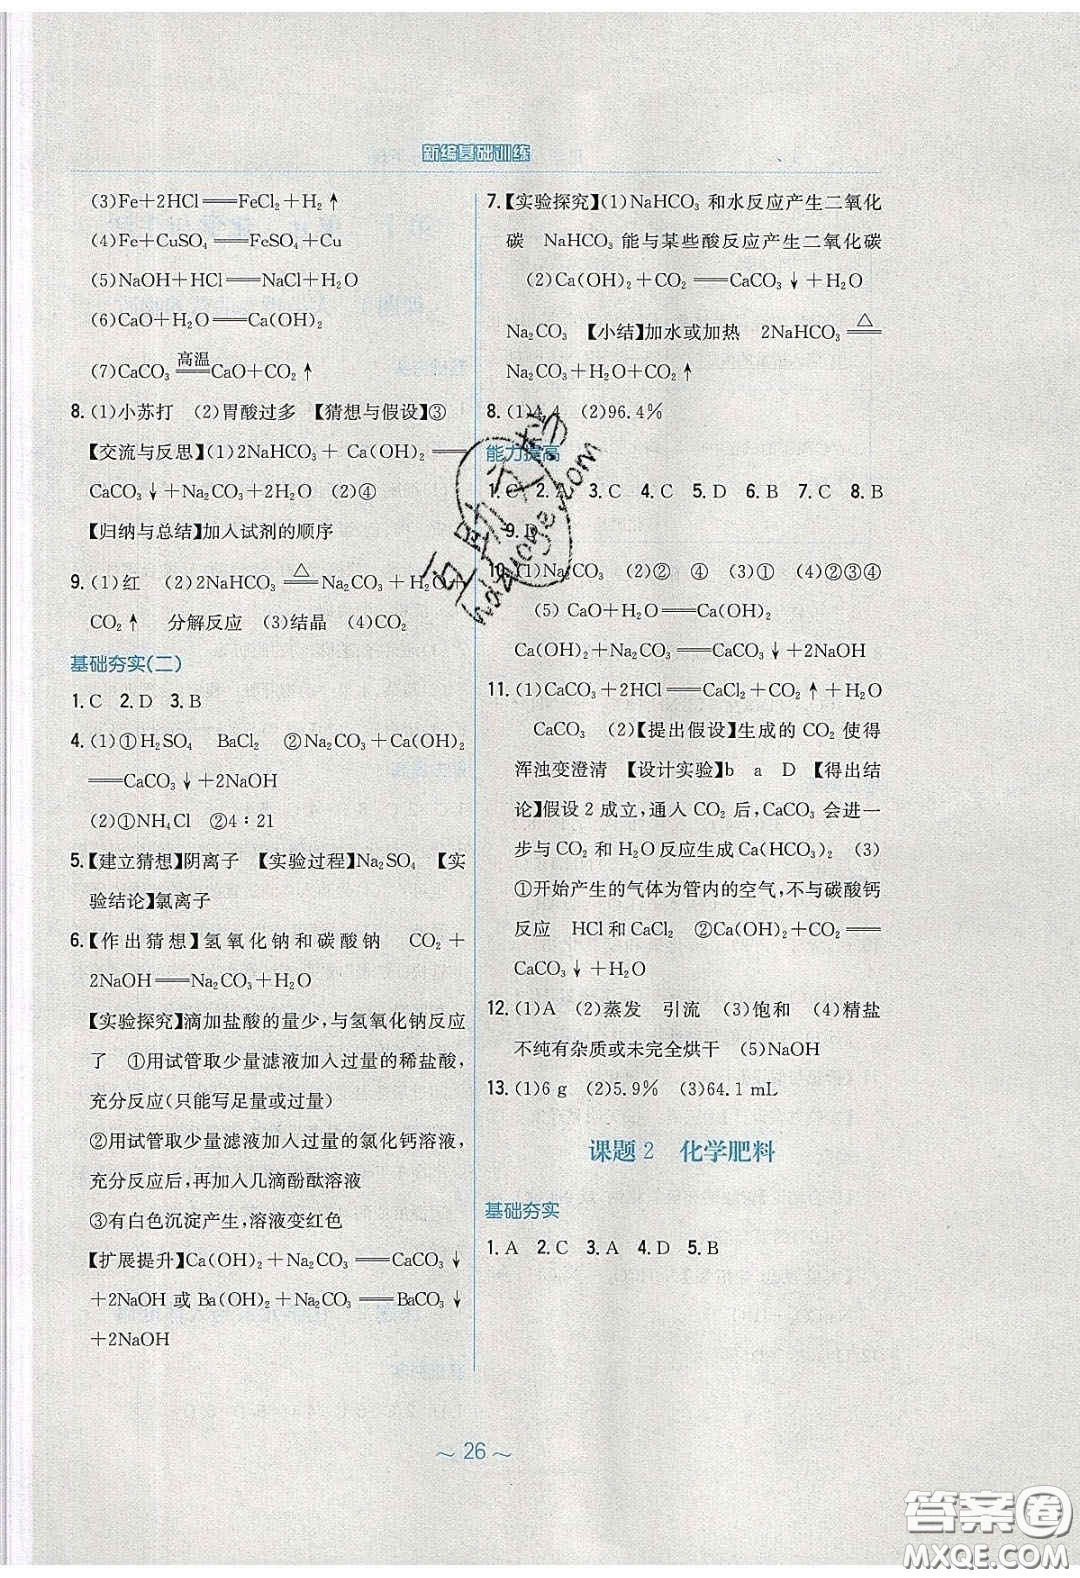 新编基础训练
(3)Fe+2HCl══FeCl₂+H₂↑
(4)Fe+CuSO₄══FeSO₄+Cu
(5)NaOH+HCl══NaCl+H₂O
(6)CaO+H₂O══Ca(OH)₂
(7)CaCO₃ 高温══ CaO+CO₂↑
8. (1)小苏打 (2)胃酸过多 【猜想与假设】③
【交流与反思】(1)2NaHCO₃+Ca(OH)₂══
CaCO₃↓+Na₂CO₃+2H₂O (2)④
【归纳与总结】加入试剂的顺序
9. (1)红 (2)2NaHCO₃ △══ Na₂CO₃+H₂O+
CO₂↑ 分解反应 (3)结晶 (4)CO₂
基础夯实(二)
1. C 2. D 3. B
4. (1)①H₂SO₄ BaCl₂ ②Na₂CO₃+Ca(OH)₂
══CaCO₃↓+2NaOH
(2)①NH₄Cl ②4∶21
5. 【建立猜想】阴离子 【实验过程】Na₂SO₄ 【实
验结论】氯离子
6. 【作出猜想】氢氧化钠和碳酸钠 CO₂+
2NaOH══Na₂CO₃+H₂O
【实验探究】滴加盐酸的量少,与氢氧化钠反应
了 ①用试管取少量滤液加入过量的稀盐酸,
充分反应(只能写足量或过量)
②用试管取少量滤液加入过量的氯化钙溶液,
充分反应后,再加入几滴酚酞溶液
③有白色沉淀产生,溶液变红色
【扩展提升】Ca(OH)₂+Na₂CO₃══CaCO₃↓
+2NaOH 或 Ba(OH)₂+Na₂CO₃══BaCO₃↓
+2NaOH
7. 【实验探究】(1)NaHCO₃ 和水反应产生二氧化
碳 NaHCO₃ 能与某些酸反应产生二氧化碳
(2)Ca(OH)₂+CO₂══CaCO₃↓+H₂O
Na₂CO₃ 【小结】加水或加热 2NaHCO₃ △══
Na₂CO₃+H₂O+CO₂↑
8. (1)4.4 (2)96.4%
能力提高
1. C 2. 3. C 4. C 5. D 6. B 7. C 8. B
9. D
10. (1)Na₂CO₃ (2)② ④ (3)① (4)②③④
(5) CaO+H₂O══Ca(OH)₂
Ca(OH)₂+Na₂CO₃══CaCO₃↓+2NaOH
11. (1)CaCO₃+2HCl══CaCl₂+CO₂↑+H₂O
CaCO₃ (2)【提出假设】生成的 CO₂ 使得
浑浊变澄清 【设计实验】b a D 【得出结
论】假设 2 成立,通入 CO₂ 后,CaCO₃ 会进一
步与 CO₂ 和 H₂O 反应生成 Ca(HCO₃)₂ (3)
①开始产生的气体为管内的空气,不与碳酸钙
反应 HCl 和 CaCl₂ ②Ca(OH)₂+CO₂══
CaCO₃↓+H₂O
12. (1)A (2)蒸发 引流 (3)饱和 (4)精盐
不纯有杂质或未完全烘干 (5)NaOH
13. (1)6 g (2)5.9% (3)64.1 mL
课题2 化学肥料
基础夯实
1. A 2. C 3. A 4. D 5. B
~ 26 ~
答案圈
MXQE.COM